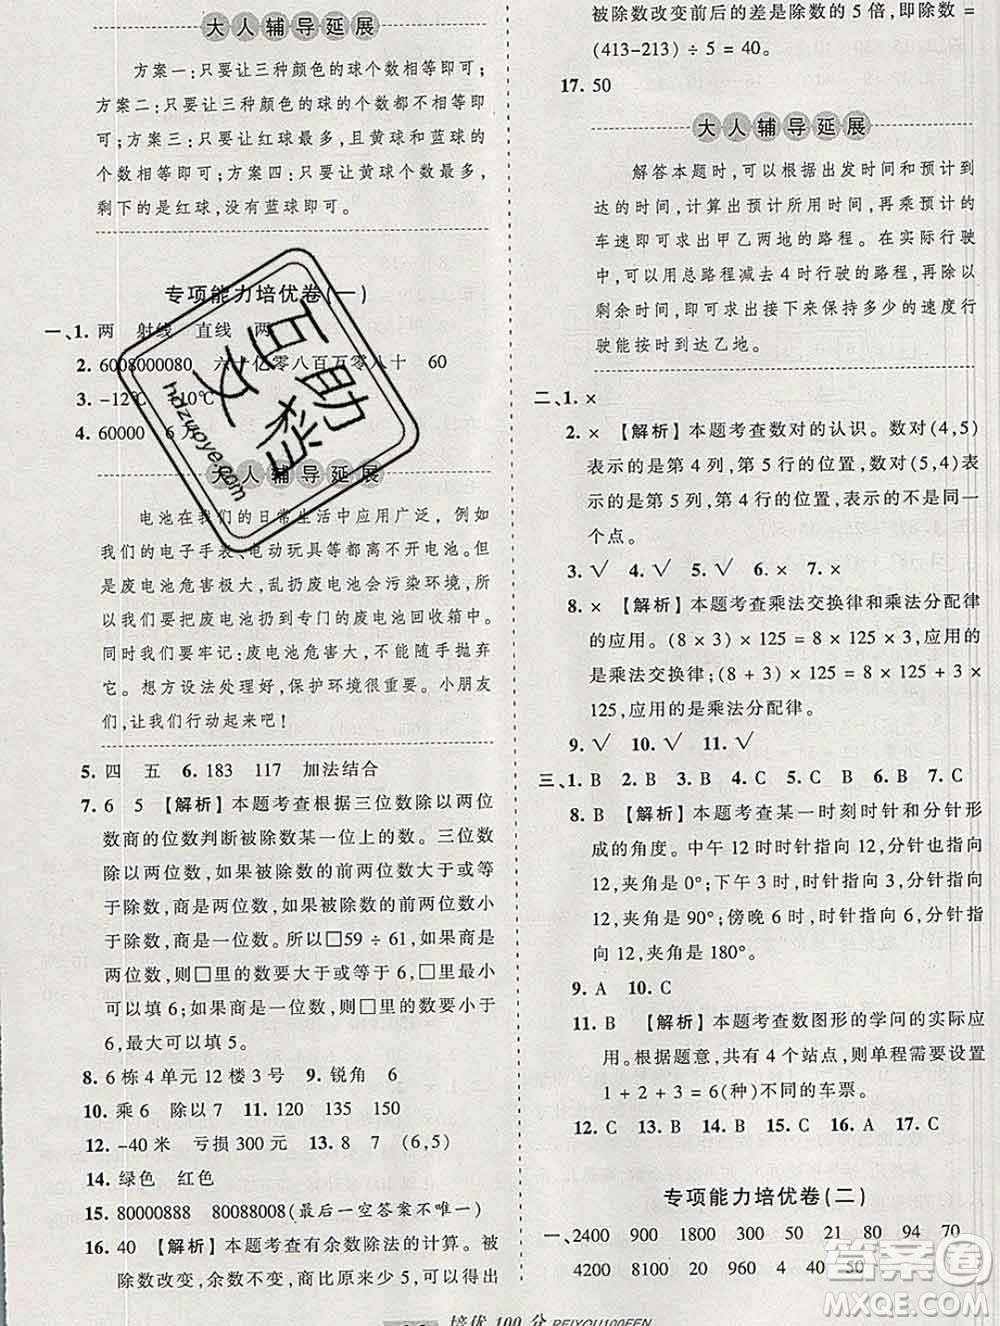 大人辅导延展
方案一:只要让三种颜色的球个数相等即可;
方案二:只要让三种颜色的球的个数都不相等即可;
方案三:只要让红球最多,且黄球和蓝球的
个数相等即可;方案四:只要让黄球个数最多,
剩下的是红球,没有蓝球即可。
专项能力培优卷(一)
一、1. 两 射线 直线 两
2. 6008000080 六十亿零八百万零八十 60
3. -12℃ +10℃
4. 60000 6万
大人辅导延展
电池在我们的日常生活中应用广泛,例如
我们的电子手表、电动玩具等都离不开电池。但
是废电池危害极大,乱扔废电池会污染环境,所
以我们要把废电池扔到专门的废电池回收箱中。
我们要牢记:废电池危害大,千万不能随手抛弃
它。想方设法处理好,保护环境很重要。小朋友
们,让我们行动起来吧!
5. 四 五 6. 183 117 加法结合
7. 6 5 【解析】本题考查根据三位数除以两位
数商的位数判断被除数某一位上的数。三位数
除以两位数,如果被除数的前两位数大于或等
于除数,商是两位数,如果被除数的前两位数小
于除数,商是一位数。所以□59÷61,如果商是
两位数,则□里的数要大于或等于6,□里最小
可以填6;如果商是一位数,□里的数要小于
6,最大可以填5。
8. 6栋4单元12楼3号 9. 锐角 6
10. 乘6 除以7 11. 120 135 150
12. -40米 亏损300元 13. 8 7 (6,5)
14. 绿色 红色
15. 80000888 80088008(最后一空答案不唯一)
16. 40 【解析】本题考查有余数除法的计算。被
除数改变,余数不变,商比原来少5,可以得出
被除数改变前后的差是除数的5倍,即除数=
(413-213)÷5=40。
17. 50
大人辅导延展
解答本题时,可以根据出发时间和预计到
达的时间,计算出预计所用时间,再乘预计的
车速即可求出甲乙两地的路程。在实际行驶
中,可以用总路程减去4时行驶的路程,再除以
剩余时间,即可求出接下来保持多少的速度行
驶能按时到达乙地。
二、1. ×
2. × 【解析】本题考查数对的认识。数对(4,5)
表示的是第4列,第5行的位置,数对(5,4)表
示的是第5列,第4行的位置,表示的不是同一
个点。
3. √ 4. √ 5. √ 6. × 7. ×
8. × 【解析】本题考查乘法交换律和乘法分配律
的应用。(8×3)×125=8×125×3,应用的
是乘法交换律;(8+3)×125=8×125+3×
125,应用的是乘法分配律。
9. √ 10. √ 11. √
三、1. B 2. B 3. B 4. C 5. A 6. B 7. C
8. B 【解析】本题考查某一时刻时针和分针形
成的角度。中午12时时针指向12,分针也指向
12,夹角0°;下午3时,时针指向3,分针指向
12,夹角是90°;傍晚6时,时针指向6,分针指
向12,夹角是180°。
9. A 10. C
11. B 【解析】本题考查数图形的学问的实际应
用。根据题意,共有4个站点,则单程需要设置
1+2+3=6(种)不同的车票。
12. C 13. C 14. B 15. C 16. A 17. C
专项能力培优卷(二)
一、2400 900 1800 300 50 21 80 94 70
4200 8100 20 960 4 40 50
培优100分 PEIYOU100FEN
百助文档
hdzuoye.com
答案圈
MXQE.COM